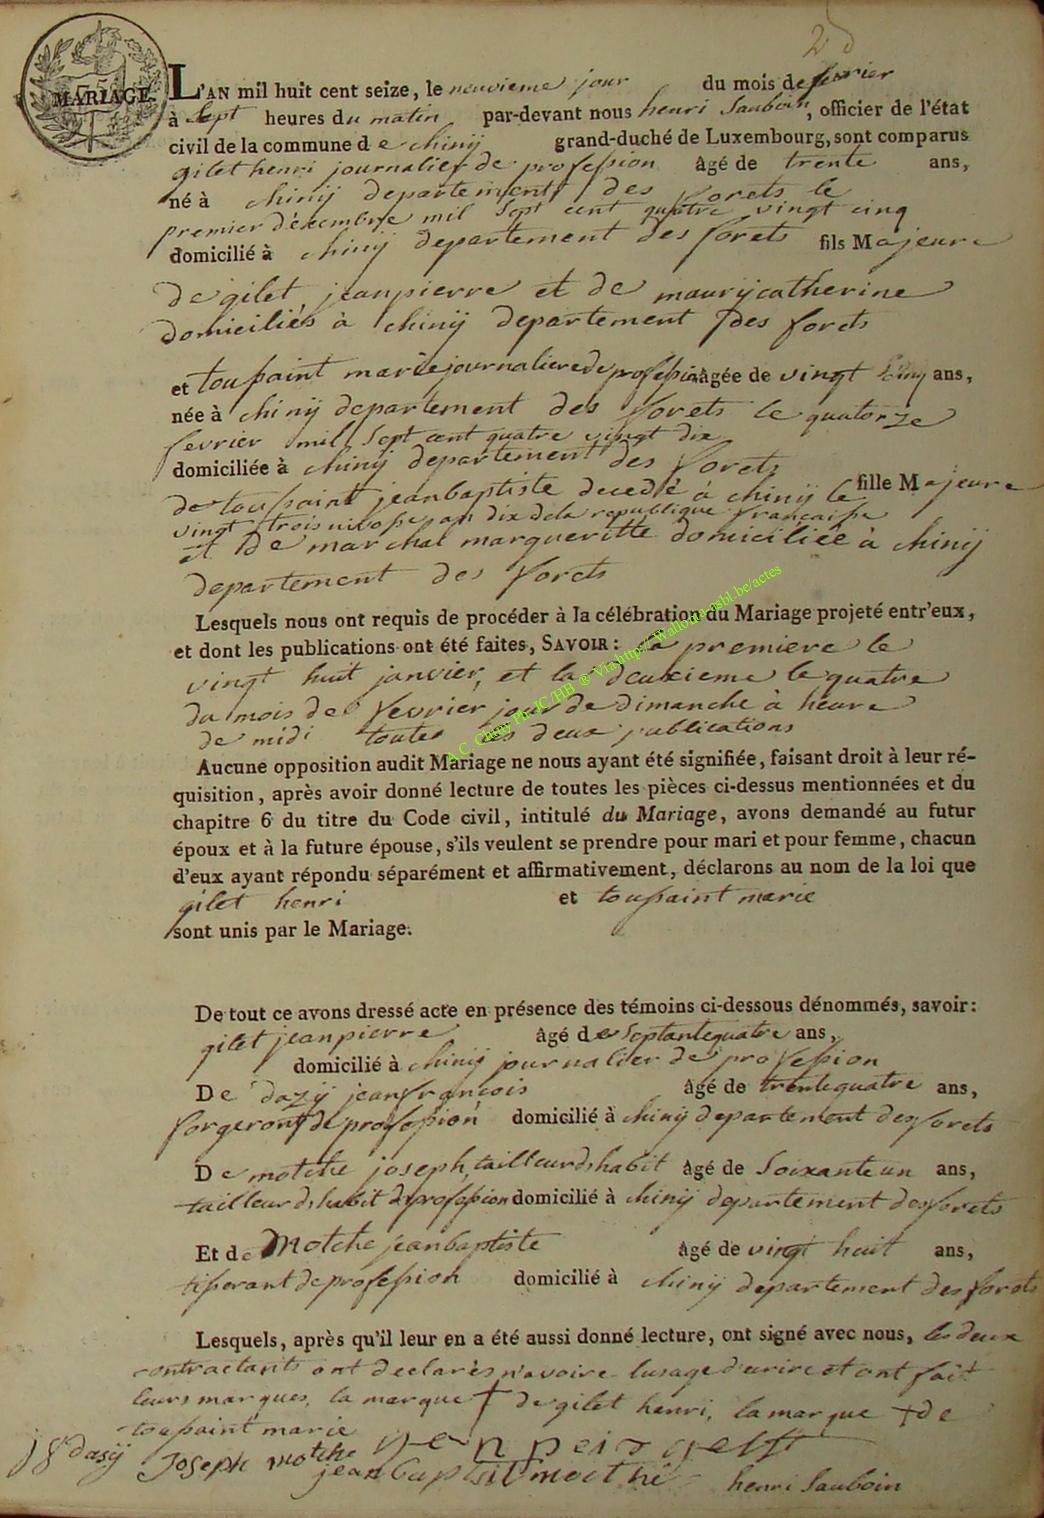 MARIAGE.
L'AN mil huit cent seize, le neuvieme jour du mois de fevrier
à Sept heures du matin par-devant nous henri Sauboin, officier de l'état
civil de la commune de chinÿ grand-duché de Luxembourg, sont comparus
gilet henri journalier de profession âgé de trente ans,
né à chinÿ departement des forets le
premier décembre mil Sept cent quatre vingt cinq
domicilié à chinÿ departement des forets fils Majeure
de gilet jeanpierre et de maurÿ catherine
domiciliés à chinÿ departement des forets
et toussaint marie journaliere de profession âgée de vingt cinq ans,
née à chinÿ departement des forets le quatorze
fevrier mil Sept cent quatre vingt dix
domiciliée à chinÿ departement des forets
fille Majeure
de toussaint jeanbaptiste decedé à chinÿ le
vingt trois nivose an dix dela republique française
et de marchal margueritte domiciliée à chinÿ
departement des forets
Lesquels nous ont requis de procéder à la célébration du Mariage projeté entr'eux,
et dont les publications ont été faites, SAVOIR: la premiere le
vingt huit janvier, et la deuxieme le quatre
du mois de fevrier jour de dimanche à heure
de midi toutes les deux publications
A.C. Chiny Ph JC/HB @ Via http://Wallonia-asbl.be/actes
Aucune opposition audit Mariage ne nous ayant été signifiée, faisant droit à leur ré-
quisition, après avoir donné lecture de toutes les pièces ci-dessus mentionnées et du
chapitre 6 du titre du Code civil, intitulé du Mariage, avons demandé au futur
époux et à la future épouse, s'ils veulent se prendre pour mari et pour femme, chacun
d'eux ayant répondu séparément et affirmativement, déclarons au nom de la loi que
gilet henri et toussaint marie
sont unis par le Mariage.
De tout ce avons dressé acte en présence des témoins ci-dessous dénommés, savoir:
gilet jeanpierre âgé de Septantequatre ans,
domicilié à chinÿ journalier de profession
De dazÿ jeanfrançois âgé de trentequatre ans,
forgeront de profession domicilié à chinÿ departement des forets
De motche joseph tailleur dshabit âgé de Soixante un ans,
tailleur dshabit de profession domicilié à chinÿ departement des forets
Et de Motche jeanbaptiste âgé de vingt huit ans,
tisserant de profession domicilié à chinÿ departement des forets
Lesquels, après qu'il leur en a été aussi donné lecture, ont signé avec nous, les deux
contractants ont declarés n'avoire lusage d'ecrire et ont fait
leurs marques, la marque † de gilet henri, la marque † de
toussaint marie
Joseph motche
jean baptist motché
henri Sauboin